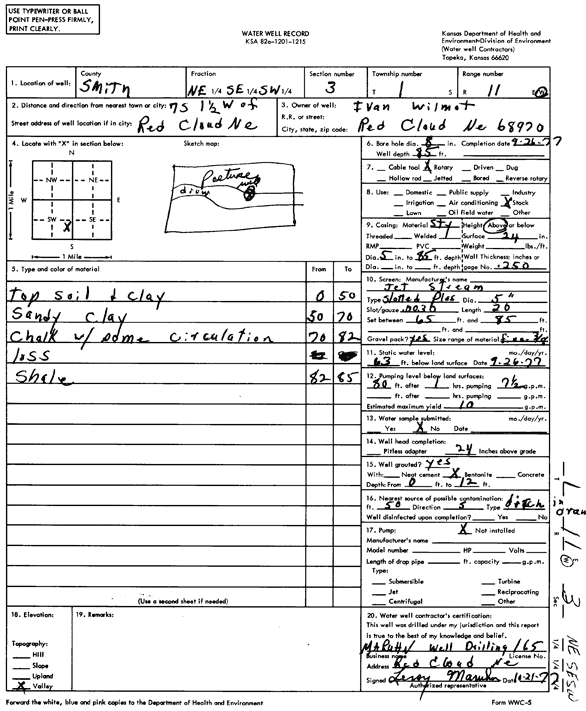 USE TYPEWRITER OR BALL
POINT PEN-PRESS FIRMLY,
PRINT CLEARLY.
WATER WELL RECORD
KSA 82a-1201-1215
Kansas Department of Health and
Environment-Division of Environment
(Water well Contractors)
Topeka, Kansas 66620
1. Location of well: County Smith Fraction NE 1/4 SE 1/4 SW 1/4 Section number 3 Township number T 1 S Range number R 11 E W
2. Distance and direction from nearest town or city: 7S 1½ W of
Street address of well location if in city: Red Cloud Ne
3. Owner of well: Ivan Wilmot
R.R. or street:
City, state, zip code: Red Cloud Ne 68970
4. Locate with "X" in section below:
N
NW NE
W E
SW SE
X
S
1 Mile
1 Mile
Sketch map:
Pasture
well
6. Bore hole dia. 8 in. Completion date 9-26-77
Well depth 85 ft.
7. Cable tool X Rotary Driven Dug
Hollow rod Jetted Bored Reverse rotary
8. Use: Domestic Public supply Industry
Irrigation Air conditioning X Stock
Lawn Oil field water Other
9. Casing: Material Height: Above or below
Threaded Welded Surface 24 in.
RMP PVC Weight lbs./ft.
Dia. 5 in. to 85 ft. depth Wall Thickness: inches or
Dia. in. to ft. depth gage No. .250
5. Type and color of material From To
Top soil & clay 0 50
Sandy Clay 50 70
Chalk w/ some circulation 70 82
loss
Shale 82 85
(Use a second sheet if needed)
10. Screen: Manufacturer's name
Jet Stream
Type Slotted Plas Dia. 5"
Slot/gauze .0030 Length 20
Set between 65 ft. and 85 ft.
ft. and ft.
Gravel pack? yes Size range of material
11. Static water level: mo./day/yr.
63 ft. below land surface Date 9-26-77
12. Pumping level below land surfaces:
80 ft. after 1 hrs. pumping 7½ g.p.m.
ft. after hrs. pumping g.p.m.
Estimated maximum yield 10 g.p.m.
13. Water sample submitted: mo./day/yr.
Yes X No Date
14. Well head completion:
Pitless adapter 24 Inches above grade
15. Well grouted? yes
With: Neat cement X Bentonite Concrete
Depth: From 0 ft. to 12 ft.
16. Nearest source of possible contamination:
ft. 50 Direction S Type ditch
Well disinfected upon completion? Yes No
17. Pump: X Not installed
Manufacturer's name
Model number HP Volts
Length of drop pipe ft. capacity g.p.m.
Type:
Submersible Turbine
Jet Reciprocating
Centrifugal Other
18. Elevation:
Topography:
Hill
Slope
Upland
X Valley
19. Remarks:
20. Water well contractor's certification:
This well was drilled under my jurisdiction and this report
is true to the best of my knowledge and belief.
Well Drilling 165
Business name License No.
Address Red Cloud Ne
Signed Leroy Date 10-21-77
Authorized representative
Forward the white, blue and pink copies to the Department of Health and Environment
Form WWC-5
T 1 S
R 11 E W
Sec 3
NE SE SW
1/4 1/4 1/4